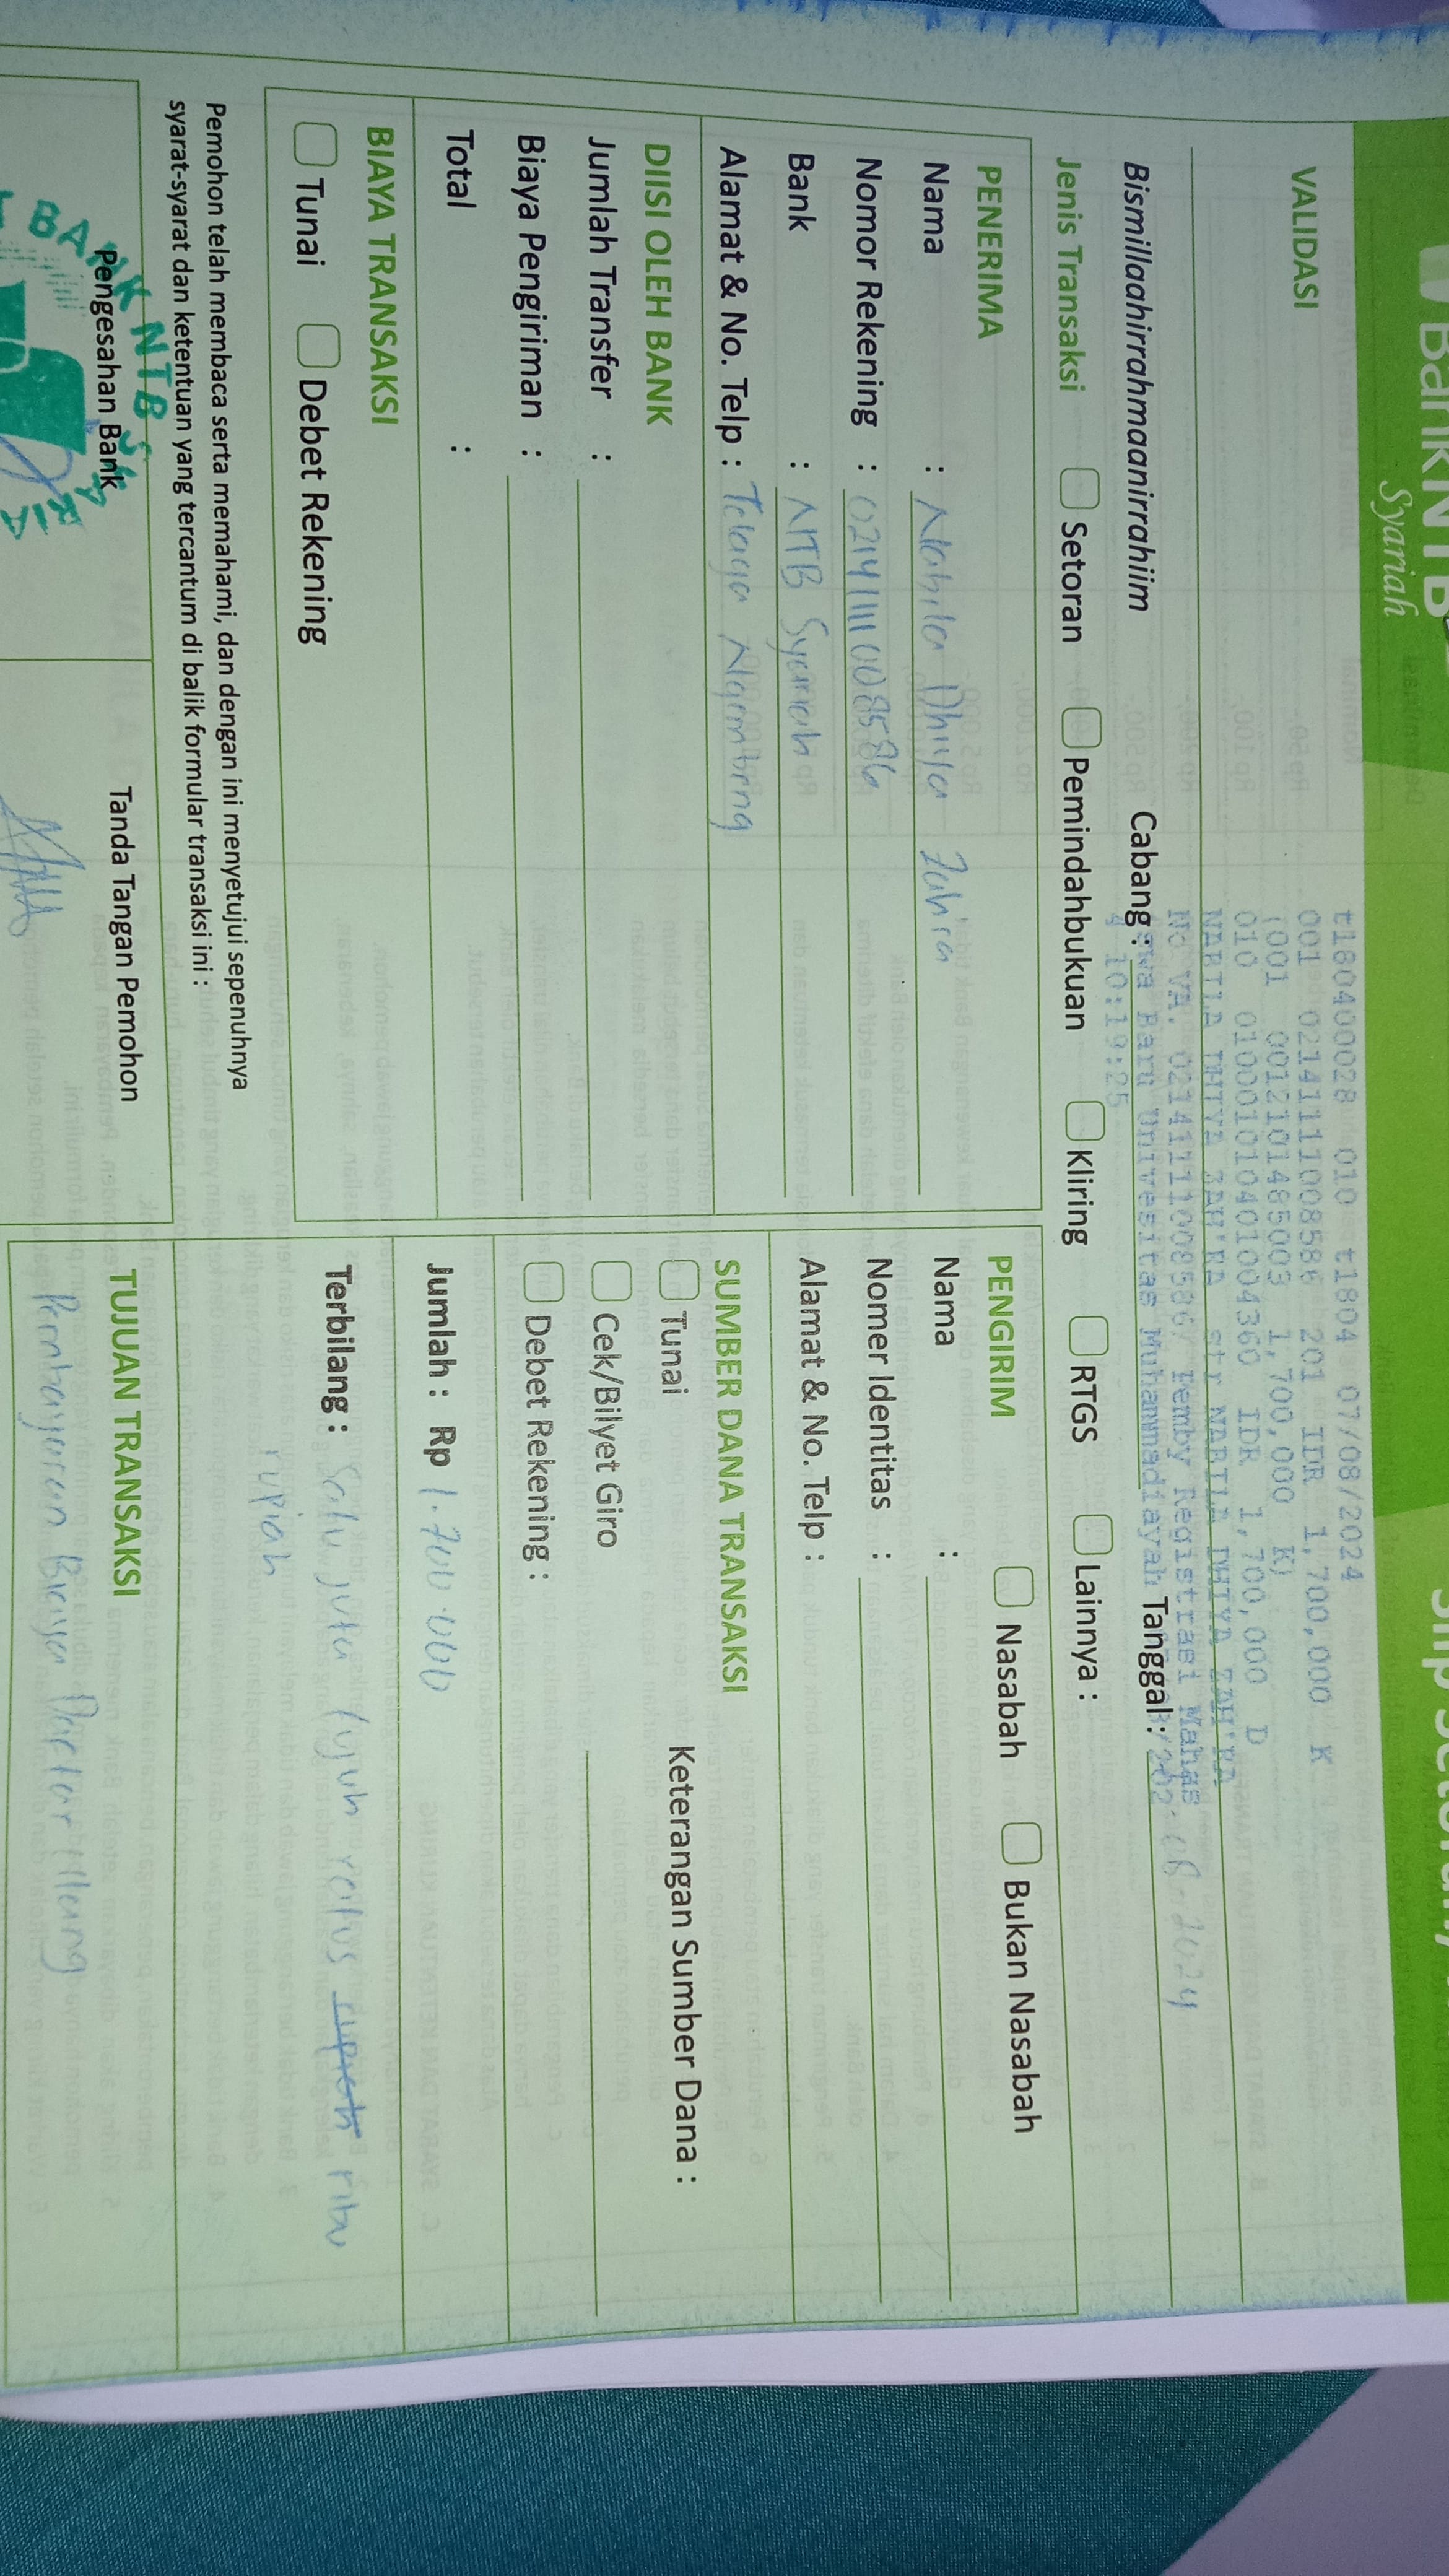 Bank NTB
Syariah
Slip Setoran,
VALIDASI
t180400028 010 t1804 07/08/2024
001 02141111008586 201 IDR 1,700,000 K
(001 0012101485003 1,700,000 K)
010 0100010104010043​60 IDR 1,700,000 D
NABILA DHIYA ZAH'RA str NABILA DHIYA ZAH'RA
No VA. 02141111008586/ Pemby Registrasi Mahas
swa Baru Univesitas Muhammadiayah
10:19:25
Bismillaahirrahmaanirrahiim Cabang : Tanggal : 08-2024
Jenis Transaksi Setoran Pemindahbukuan Kliring RTGS Lainnya :
PENERIMA
Nama : Nabila Dhiya Zahra
Nomor Rekening : 02141111008586
Bank : NTB Syariah
Alamat & No. Telp : Telaga Ngembeng
PENGIRIM Nasabah Bukan Nasabah
Nama :
Nomer Identitas :
Alamat & No. Telp :
DIISI OLEH BANK
Jumlah Transfer :
Biaya Pengiriman :
Total :
SUMBER DANA TRANSAKSI
Tunai Keterangan Sumber Dana :
Cek/Bilyet Giro
Debet Rekening :
BIAYA TRANSAKSI
Tunai Debet Rekening
Jumlah : Rp 1.700.000
Terbilang : Satu juta tujuh ratus rupiah ribu
rupiah
Pemohon telah membaca serta memahami, dan dengan ini menyetujui sepenuhnya
syarat-syarat dan ketentuan yang tercantum di balik formular transaksi ini :
Pengesahan Bank Tanda Tangan Pemohon
BANK NTB SYARIA
TUJUAN TRANSAKSI
Pembayaran Biaya Daftar Ulang